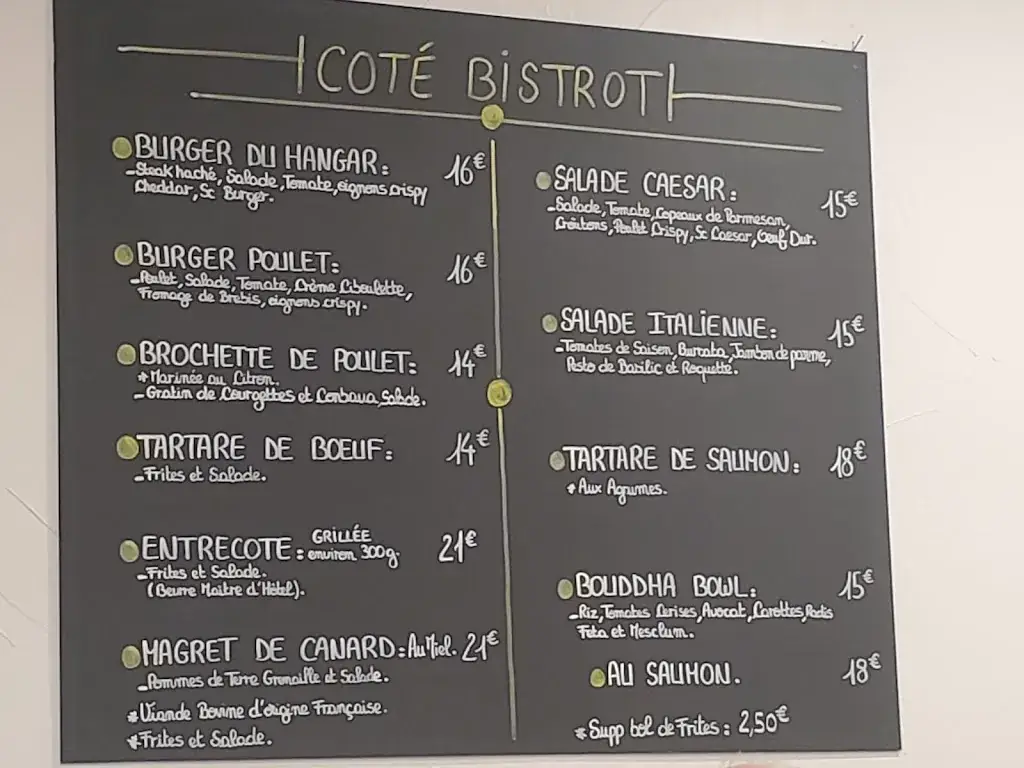 COTÉ BISTROT
BURGER DU HANGAR: 16€
-Steak haché, Salade, Tomate, oignons crispy
Cheddar, Sc Burger.
BURGER POULET: 16€
-Poulet, Salade, Tomate, Crème Ciboulette,
Fromage de Brebis, oignons crispy.
BROCHETTE DE POULET: 14€
*Marinée au Citron.
-Gratin de Courgettes et Conbava, Salade.
TARTARE DE BOEUF: 14€
-Frites et Salade.
ENTRECOTE: GRILLÉE environ 300g. 21€
-Frites et Salade.
(Beurre Maitre d'Hôtel).
MAGRET DE CANARD: Au Miel. 21€
-Pommes de Terre Grenaille et Salade.
*Viande Bovine d'origine Française.
*Frites et Salade.
SALADE CAESAR: 15€
-Salade, Tomate, Copeaux de Parmesan,
Croûtons, Poulet Crispy, Sc Caesar, Oeuf Dur.
SALADE ITALIENNE: 15€
-Tomates de Saison, Burrata, Jambon de parme,
Pesto de Basilic et Roquette.
TARTARE DE SAUMON: 18€
*Aux Agrumes.
BOUDDHA BOWL: 15€
-Riz, Tomates Cerises, Avocat, Carottes, Radis
Feta et Mesclum.
AU SAUMON. 18€
*Supp bol de Frites: 2,50€